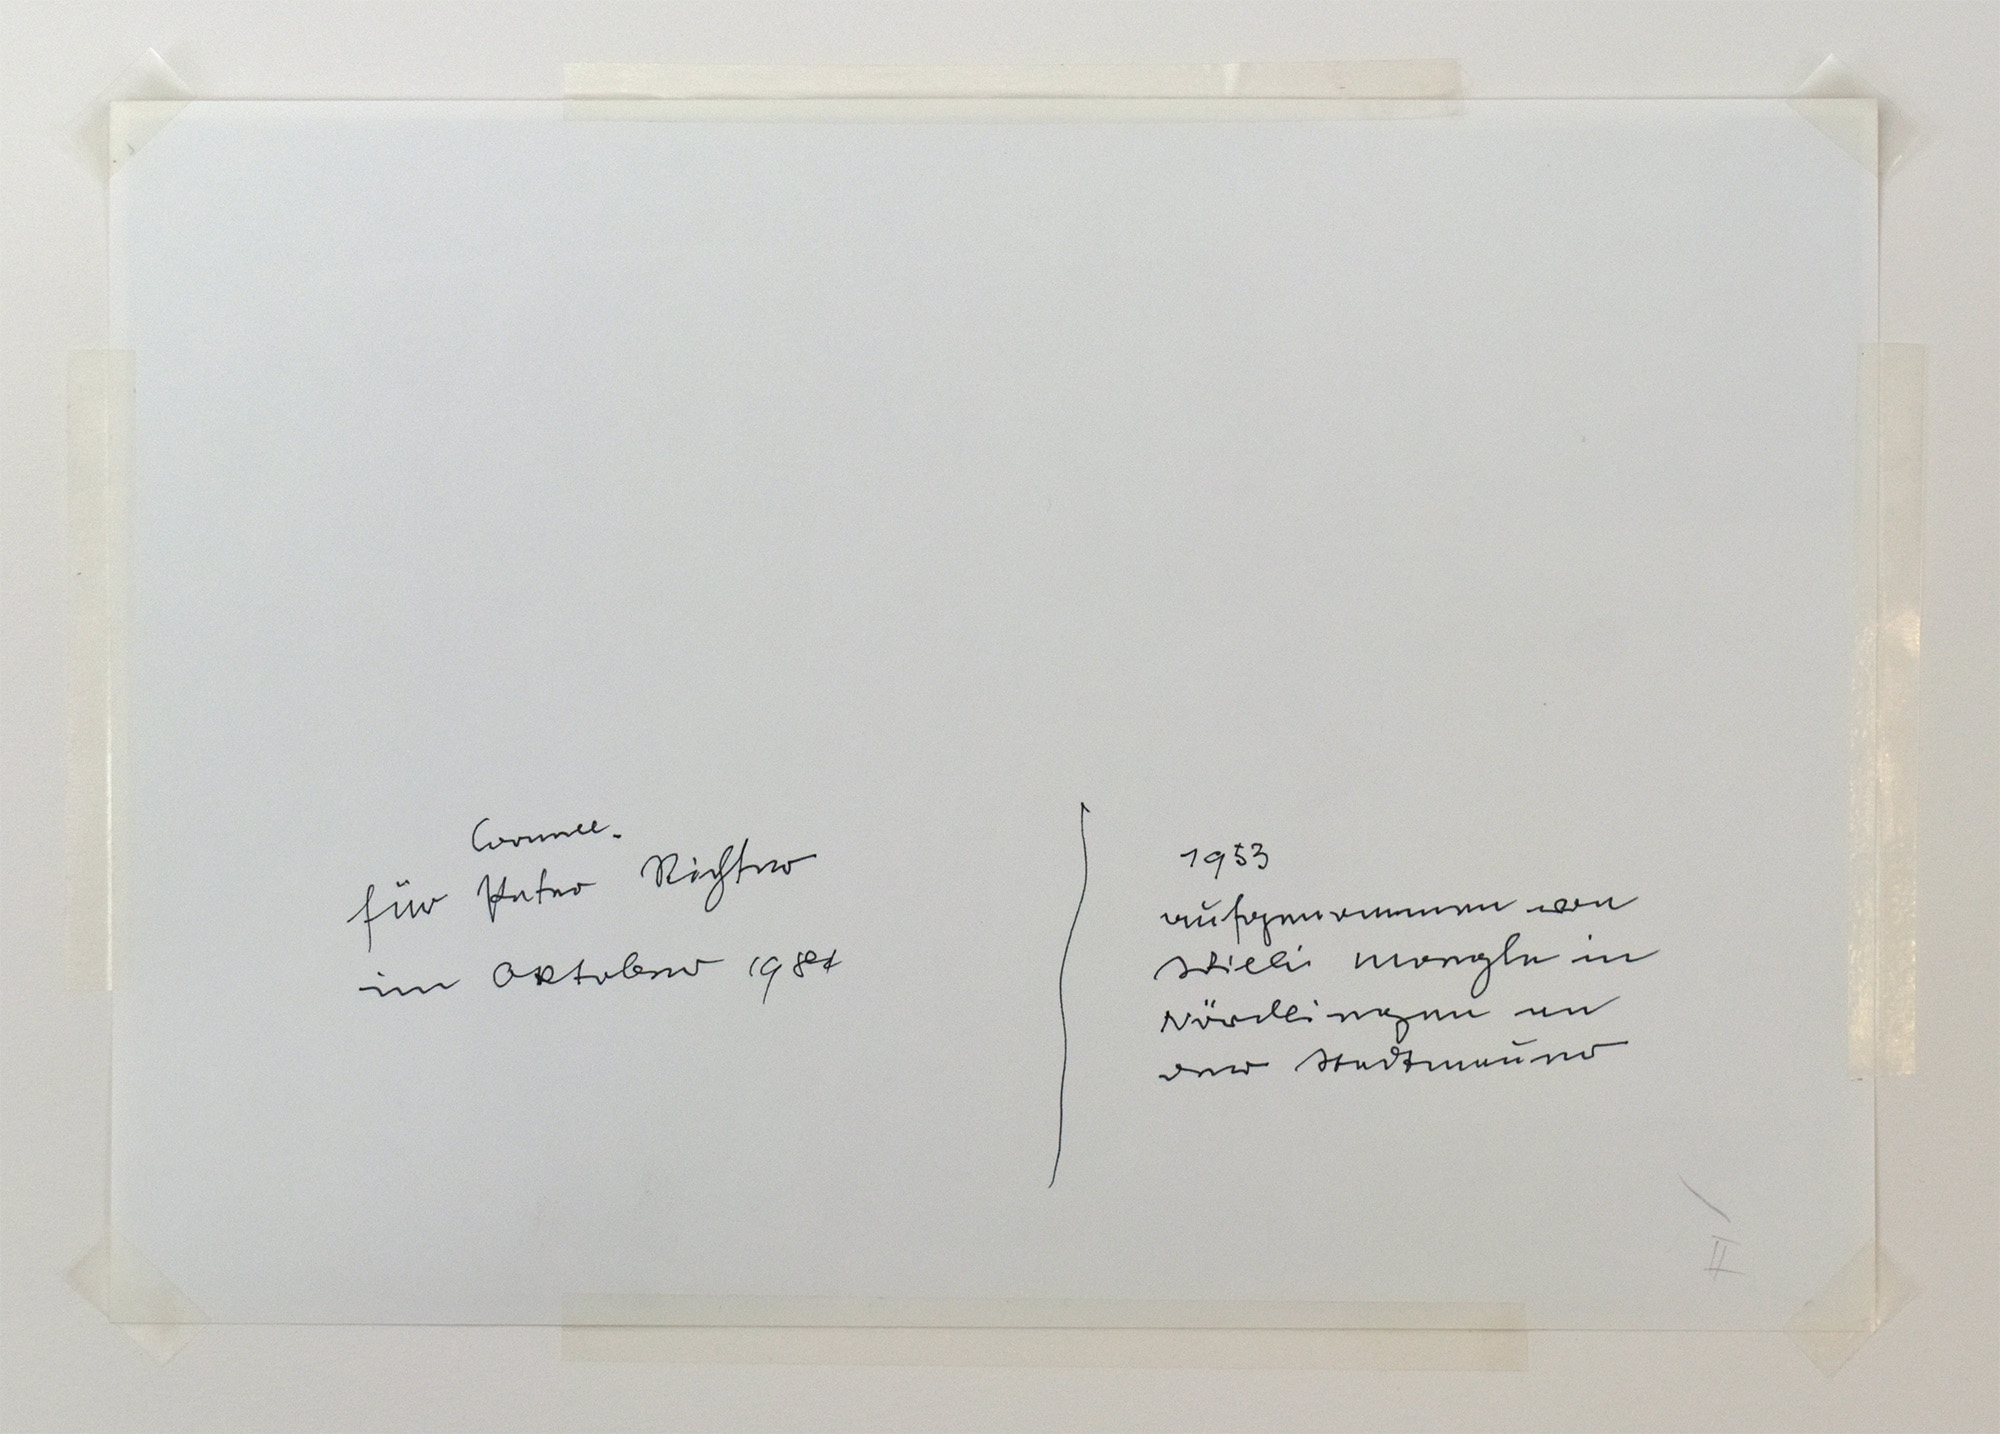 für Peter Richter
im Oktober 1981
1953
aufgenommen von
Willi Moegle in
Nördlingen an
der Stadtmauer
II